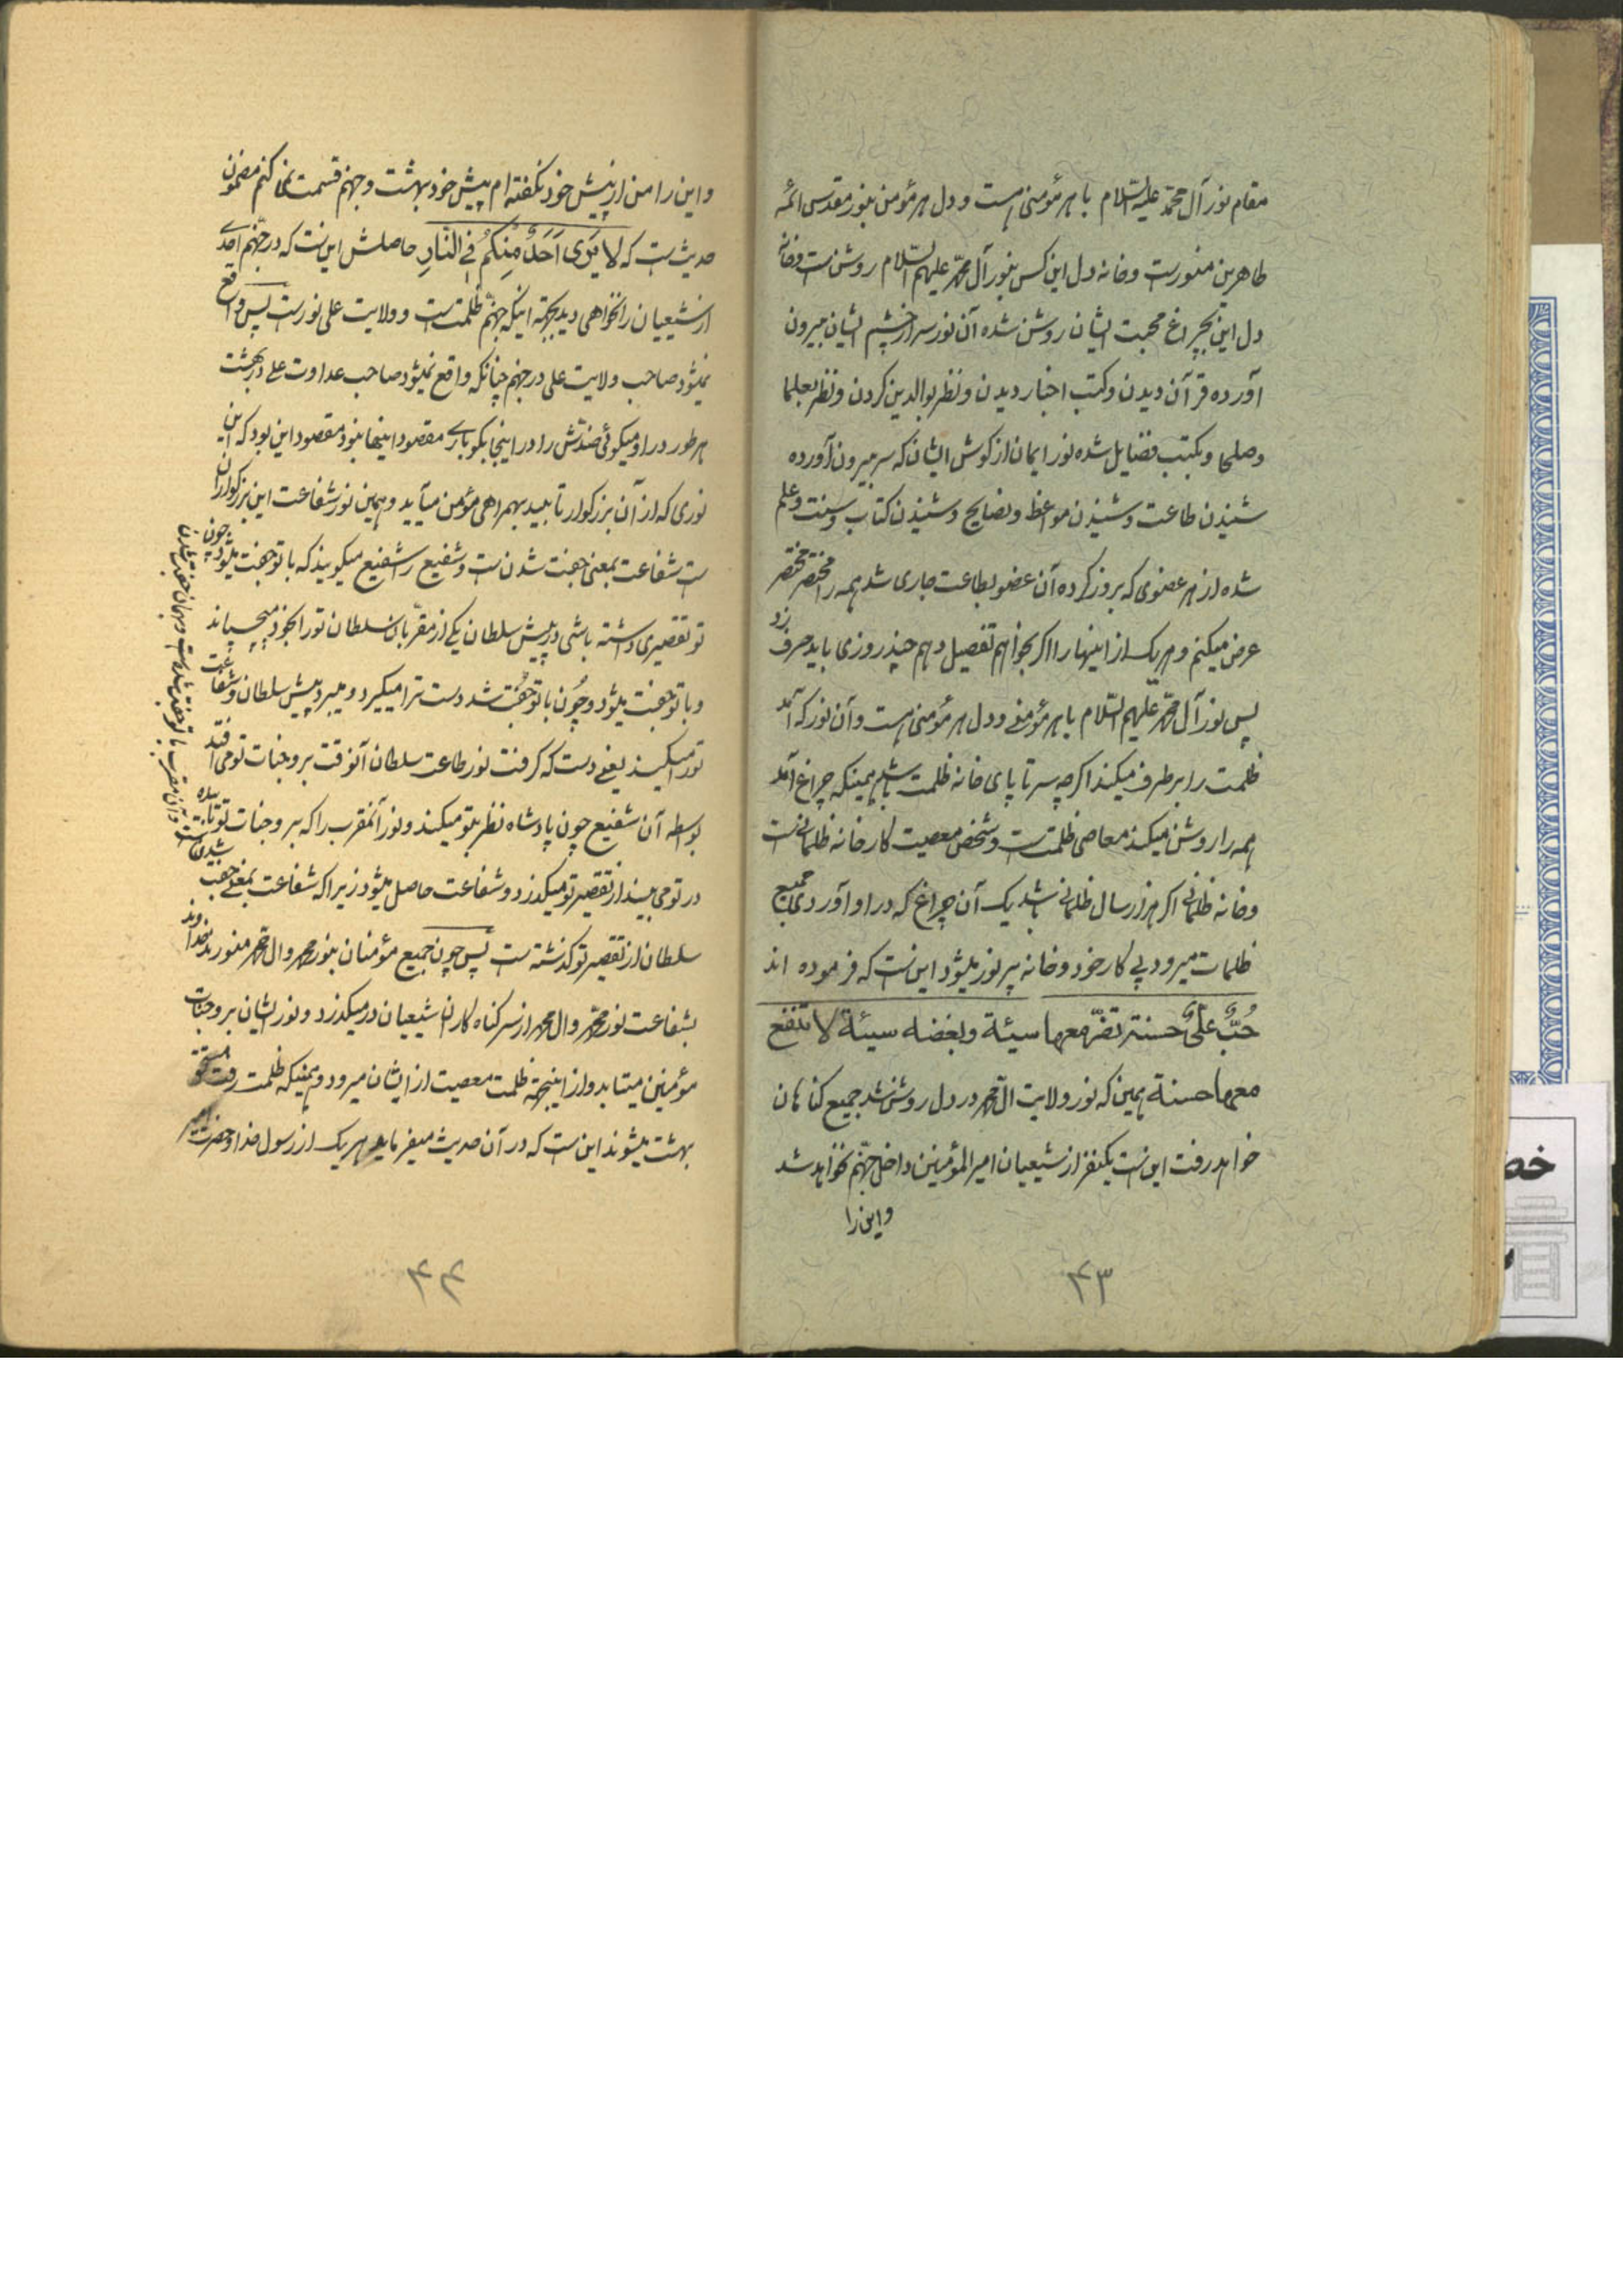 مقام نور آل محمّد علیهم السّلام با هر مؤمنی هست و دل هر مؤمن بنور مقدس ائمّه
طاهرین منورست و خانه دل این کس بنور آل محمّد علیهم السّلام روشن ست و خانه
دل این بچراغ محبت ایشان روشن شده آن نور سر از چشم ایشان بیرون
آورده قرآن دیدن و کتب اخبار دیدن و نظر بوالدین کردن و نظر بعلما
و صلحا و بکتب فضایل شده نور ایمان از کوش ایشان که سر بیرون آورده
شنیدن طاعت و شنیدن مواعظ و نصایح و شنیدن کتاب و سنت و علم
شده از هر عضوی که بروز کرده آن عضو بطاعت جاری شد همه را مختصر مختصر
عرض میکنم و هر یک از اینها را اکر بخواهم تفصیل دهم چند روزی باید حرف زد
پس نور آل محمّد علیهم السّلام با هر مؤمنی و دل هر مؤمنی هست و آن نور که آمد
ظلمت را برطرف میکند اکرچه سر تا پای خانه ظلمت باشد همینکه چراغ آمد
همه را روشن میکند معاصی ظلمت ست و شخص معصیت کار خانه ظلمانی ست
و خانه ظلمانی اکر هزار سال ظلمانی باشد یک آن چراغ که در او آوردی جمیع
ظلمات میرود پی کار خود و خانه پر نور میشود این ست که فرموده اند
حُبُّ عَلیٍّ حسنة لا تضرّ معها سیئة و بغضه سیئة لا تنفع
معها حسنة همین که نور ولایت ال محمّد در دل روشن شد جمیع کناهان
خواهد رفت این ست یکنفر از شیعیان امیر المؤمنین داخل جهنّم نخواهد شد
و این را
۴۳
و این را من از پیش خود نکفته ام پیش خود بهشت و جهنم قسمت نمی کنم مضمون
حدیث ست که لا یَرَی اَحَدٌ مِنکُم فِی النّارِ حاصلش این ست که در جهنّم احدی
از شیعیان را نخواهی دید بجهة اینکه جهنّم ظلمت ست و ولایت علی نورست پس واقع
نمیشود صاحب ولایت علی در جهنم چنانکه واقع نمیشود صاحب عداوت علی در بهشت
هر طور در او میکوئی ضدّش را در اینجا بکو باری مقصود اینها نبود مقصود این بود که این
نوری که از آن بزرکوار تابید بهمراهی مؤمن میآید و همین نور شفاعت این بزرکواران
ست شفاعت بمعنی جفت شدن ست و شفیع را شفیع میکویند که با تو جفت میشود چون
تو تقصیری داشته باشی در پیش سلطان یکی از مقرّبان سلطان تو را بخود میچسباند
و با تو جفت میشود و چون با تو جفت شد دست ترا میکیرد و میبرد پیش سلطان و شفاعت
تو را میکند یعنی دست که کرفت نور طاعت سلطان آنوقت بر وجنات تو می افتد
بواسطه آن شفیع چون پادشاه نظر بتو میکند و نور آنمقرب را که بر وجنات تو تابیده
در تو می بیند از تقصیر تو میکذرد و شفاعت حاصل میشود زیرا که شفاعت بمعنی جفت شدن ست
و آن مقرب با تو جفت شده ست و بهمان جفت شدن
سلطان از تقصیر تو کذشته ست پس چون جمیع مؤمنان بنور محمد و ال محمّد منورند خداوند
بشفاعت نور محمّد و ال محمد از سر کناه کاران شیعیان در میکذرد و نور ایشان بر وجنات
مؤمنین میتابد و از اینجهة ظلمت معصیت از ایشان میرود و همینکه ظلمت رفت
بهشت میشوند این ست که در آن حدیث میفرماید هر یک از رسول خدا و حضرت
۴۴
خص